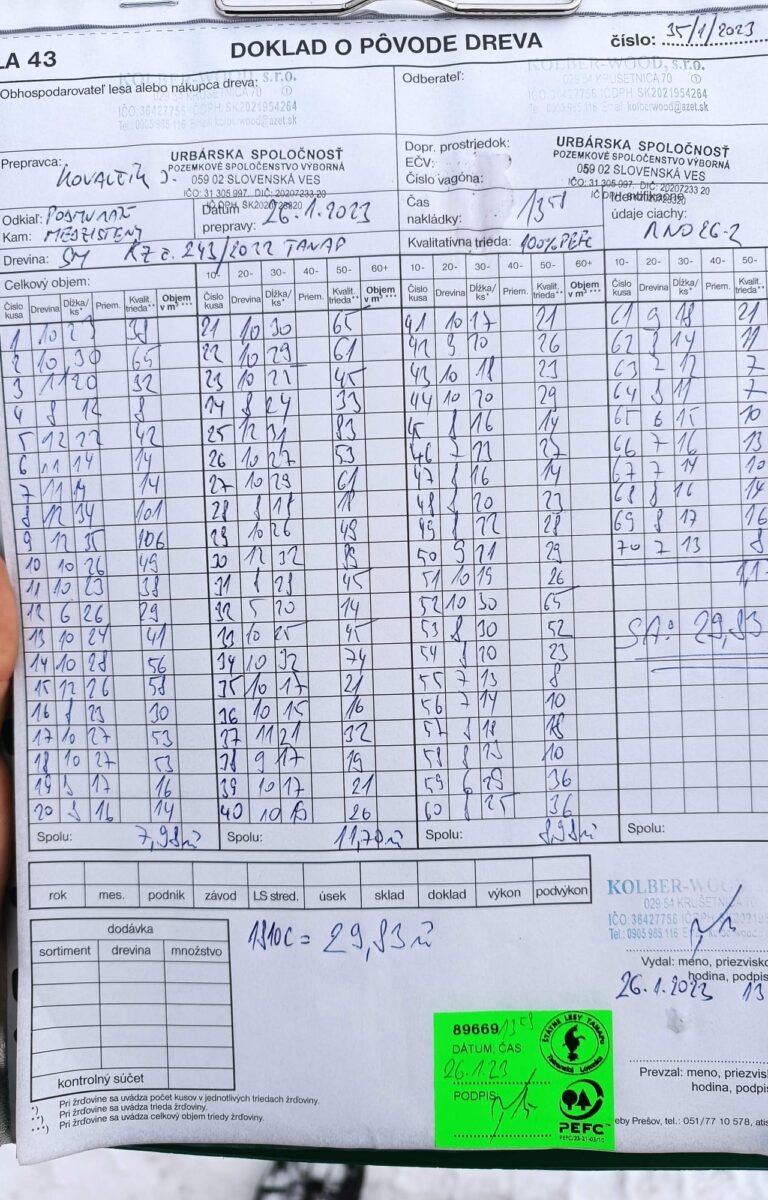 LA 43
DOKLAD O PÔVODE DREVA
číslo: 35/1/2023
KOLBER-WOOD, s.r.o.
029 54 KRUŠETNICA 70
IČO: 36427756 IČ DPH: SK2021954264
Tel.: 0905 985 116 Email: kolberwood@azet.sk
Obhospodarovateľ lesa alebo nákupca dreva:
KOLBER-WOOD, s.r.o.
029 54 KRUŠETNICA 70
IČO: 36427756 IČ DPH: SK2021954264
Tel.: 0905 985 116 Email: kolberwood@azet.sk
Odberateľ:
Prepravca:
URBÁRSKA SPOLOČNOSŤ
POZEMKOVÉ SPOLOČENSTVO VÝBORNÁ
059 02 SLOVENSKÁ VES
IČO: 31 305 997, DIČ: 20207233 20
Dopr. prostriedok:
EČV:
Číslo vagóna:
URBÁRSKA SPOLOČNOSŤ
POZEMKOVÉ SPOLOČENSTVO VÝBORNÁ
059 02 SLOVENSKÁ VES
IČO: 31 305 997, DIČ: 20207233 20
Odkiaľ:
Kam:
Dátum prepravy: 26.1.2023
Čas nakládky: 13 51
Identifikačné údaje ciachy:
Drevina: SM KZ č. 243/2022 TANAP
Kvalitatívna trieda: 100% PEFC
Celkový objem:
10- 20- 30- 40- 50- 60+ 10- 20- 30- 40- 50- 60+ 10- 20- 30- 40- 50-
Číslo kusa Drevina Dĺžka/ks* Priem. Kvalit. trieda** Objem v m³ ***
Číslo kusa Drevina Dĺžka/ks* Priem. Kvalit. trieda** Objem v m³ ***
Číslo kusa Drevina Dĺžka/ks* Priem. Kvalit. trieda** Objem v m³ ***
Číslo kusa Drevina Dĺžka/ks* Priem. Kvalit. trieda**
1 10 23 38 21 10 30 65 41 10 17 21 61 9 18 21
2 10 30 65 22 10 29 61 42 9 20 26 62 8 14 11
3 11 20 32 23 10 25 45 43 10 18 23 63 12 7
4 8 12 8 24 8 24 33 44 10 20 29 64 8 11 7
5 12 22 42 25 12 31 83 45 8 16 14 65 6 15 10
6 11 14 14 26 10 27 53 46 7 23 27 66 7 16 13
7 11 14 14 27 10 29 61 47 8 16 14 67 7 14 10
8 12 34 101 28 8 18 18 48 8 20 23 68 8 16 14
9 12 35 106 29 10 26 49 49 8 22 28 69 8 17 16
10 10 26 49 30 12 32 89 50 9 21 29 70 7 13 8
11 10 23 38 31 8 28 45 51 10 19 26
12 6 26 29 32 5 20 14 52 10 30 65
13 10 24 41 33 10 25 45 53 8 30 52 SA: 29,83
14 10 28 56 34 10 32 74 54 8 20 23
15 12 26 58 35 10 17 21 55 7 13 8
16 8 23 30 36 10 15 16 56 7 14 10
17 10 27 53 37 11 21 32 57 8 18 18
18 10 27 53 38 9 17 19 58 8 13 10
19 8 17 16 39 10 17 21 59 6 29 36
20 8 16 14 40 10 26 60 8 25 36
Spolu: 7,98 Spolu: 11,70 Spolu: 8,98 Spolu:
rok mes. podnik závod LS stred. úsek sklad doklad výkon podvýkon
dodávka
sortiment drevina množstvo
kontrolný súčet
= 29,83
KOLBER-WOOD, s.r.o.
029 54 KRUŠETNICA 70
IČO: 36427756
Tel.: 0905 985 116
Vydal: meno, priezvisko
hodina, podpis
26.1.2023 13
89669
DÁTUM: ČAS:
26.1.23
PODPIS
ŠTÁTNE LESY TANAPu
Tatranská Lomnica
PEFC™
PEFC/23-21-03/10
Prevzal: meno, priezvisko
hodina, podpis
*) Pri žrďovine sa uvádza počet kusov v jednotlivých triedach žrďoviny.
**) Pri žrďovine sa uvádza trieda žrďoviny.
***) Pri žrďovine sa uvádza celkový objem triedy žrďoviny.
eby Prešov, tel.: 051/77 10 578, atis